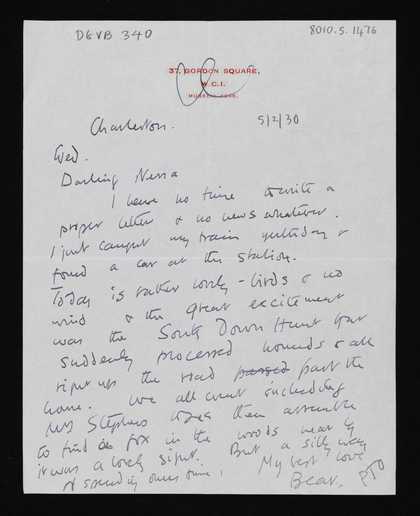 DGVB 340
8010.5.1476
37, GORDON SQUARE,
W.C.1.
Charleston.
5/2/30
Wed.
Darling Nessa
I have no time to write a
proper letter & no news whatever.
I just caught my train yesterday &
found a car at the station.
Today is rather lovely – birds & no
wind & the great excitement
was the South Down Hunt that
suddenly processed hounds & all
right up the road passed past the
house. We all went including
Mrs Stephens to see them assemble
to find a fox in the woods near by
it was a lovely sight. But a silly way
of spending ones time.
My best love
Bear.
PTO